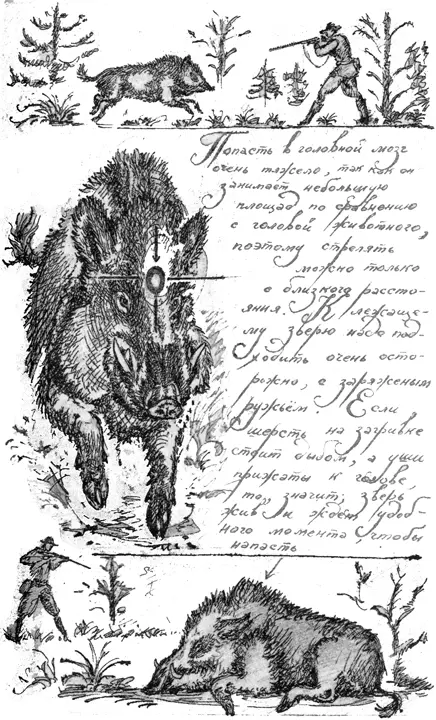 Попасть в головной мозг
очень тяжело, так как он
занимает небольшую
площадь по сравнению
с головой животного,
поэтому стрелять
можно только
с близкого рассто-
яния. К лежаще-
му зверю надо под-
ходить очень осто-
рожно, с заряженым
ружьём. Если
шерсть на загривке
стоит дыбом, а уши
прижаты к голове,
то, значит, зверь
жив и ждёт удоб-
ного момента, чтобы
напасть